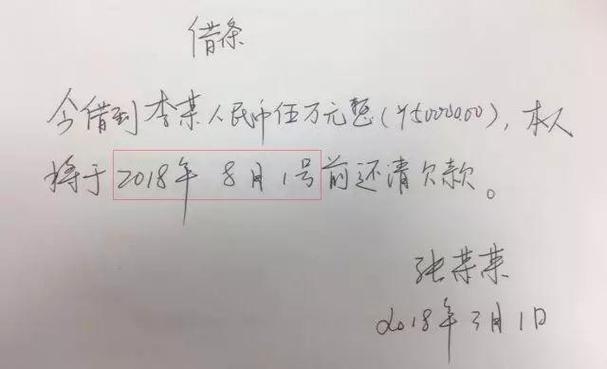 借条
今借到李某人民币伍万元整(¥50000.00),本人
将于2018年8月1号前还清欠款。
张某某
2018年3月1日